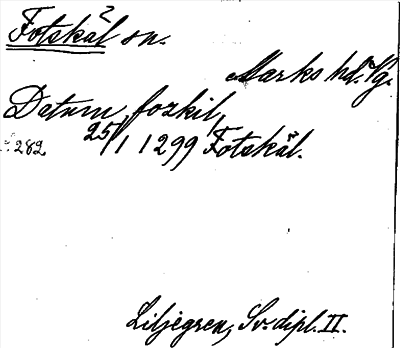 Fotskäl sn.
Marks hd. Vg.
Datum, fozkil,
25/1 1299 Fotskäl.
282
Liljegren, Sv. dipl. II.